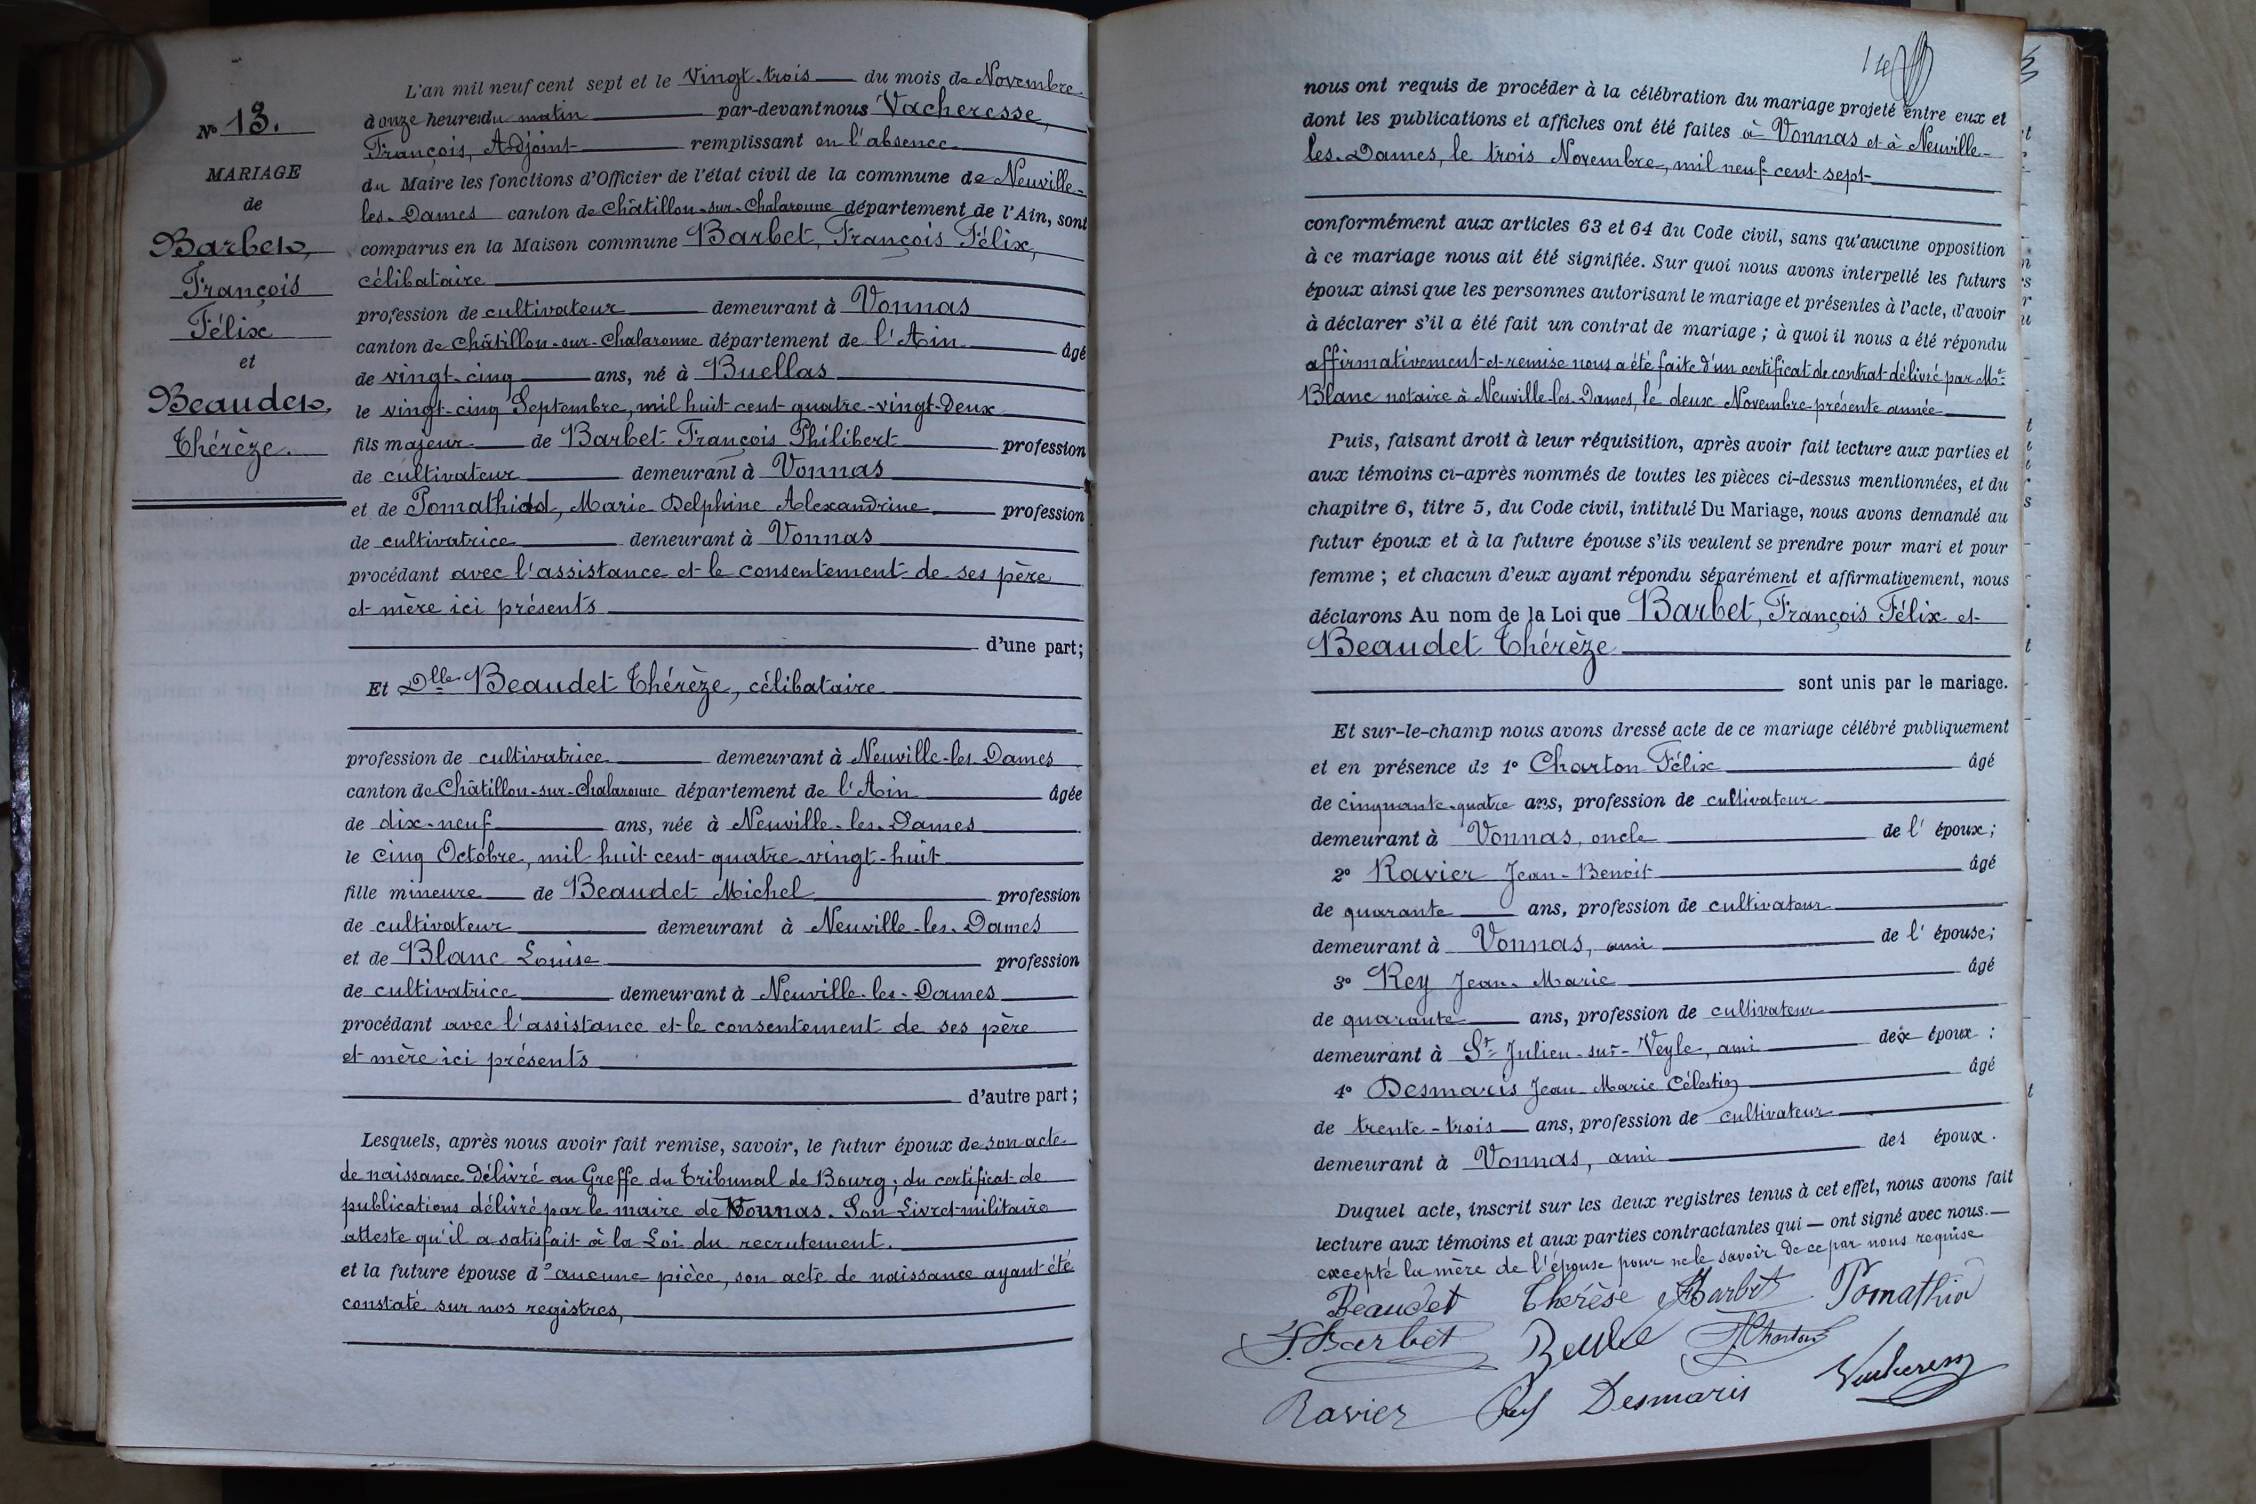 N° 13.
MARIAGE
de
Barbet,
François
Félix
et
Beaudet,
Thérèze.
L'an mil neuf cent sept et le Vingt-trois du mois de Novembre
heures du matin par-devant nous Vacheresse,
François, Adjoint remplissant en l'absence
du Maire les fonctions d'Officier de l'état civil de la commune de Neuville-
les-Dames canton de Châtillon-sur-Chalaronne département de l'Ain, sont
comparus en la Maison commune Barbet, François Félix,
célibataire
profession de cultivateur demeurant à Vonnas
canton de Châtillon-sur-Chalaronne département de l'Ain âgé
de vingt-cinq ans, né à Buellas
le vingt-cinq Septembre, mil huit cent quatre-vingt-deux
fils majeur de Barbet François Philibert profession
de cultivateur demeurant à Vonnas
et de Pomathiod, Marie Delphine Alexandrine profession
de cultivatrice demeurant à Vonnas
procédant avec l'assistance et le consentement de ses père
et mère ici présents
d'une part;
Et Dlle Beaudet Thérèze, célibataire
profession de cultivatrice demeurant à Neuville-les-Dames
canton de Châtillon-sur-Chalaronne département de l'Ain âgée
de dix-neuf ans, née à Neuville-les-Dames
le cinq Octobre, mil huit cent quatre vingt-huit
fille mineure de Beaudet Michel profession
de cultivateur demeurant à Neuville-les-Dames
et de Blanc Louise profession
de cultivatrice demeurant à Neuville-les-Dames
procédant avec l'assistance et le consentement de ses père
et mère ici présents
d'autre part;
Lesquels, après nous avoir fait remise, savoir, le futur époux de son acte
de naissance délivré au Greffe du Tribunal de Bourg; du certificat de
publications délivré par le maire de Vonnas. Son Livret militaire
atteste qu'il a satisfait à la Loi du recrutement.
et la future épouse d'aucune pièce, son acte de naissance ayant été
constaté sur nos registres,
nous ont requis de procéder à la célébration du mariage projeté entre eux et
dont les publications et affiches ont été faites à Vonnas et à Neuville-
les-Dames, le trois Novembre, mil neuf cent sept
conformément aux articles 63 et 64 du Code civil, sans qu'aucune opposition
à ce mariage nous ait été signifiée. Sur quoi nous avons interpellé les futurs
époux ainsi que les personnes autorisant le mariage et présentes à l'acte, d'avoir
à déclarer s'il a été fait un contrat de mariage; à quoi il nous a été répondu
affirmativement et remise nous a été faite d'un certificat de contrat délivré par Me
Blanc notaire à Neuville-les-Dames, le deux Novembre présente année
Puis, faisant droit à leur réquisition, après avoir fait lecture aux parties et
aux témoins ci-après nommés de toutes les pièces ci-dessus mentionnées, et du
chapitre 6, titre 5, du Code civil, intitulé Du Mariage, nous avons demandé au
futur époux et à la future épouse s'ils veulent se prendre pour mari et pour
femme; et chacun d'eux ayant répondu séparément et affirmativement, nous
déclarons Au nom de la Loi que Barbet, François Félix et
Beaudet Thérèze
sont unis par le mariage.
Et sur-le-champ nous avons dressé acte de ce mariage célébré publiquement
et en présence de 1° Charton Félix âgé
de cinquante-quatre ans, profession de cultivateur
demeurant à Vonnas, oncle de l'époux;
2° Ravier Jean-Benoit âgé
de quarante ans, profession de cultivateur
demeurant à Vonnas, ami de l'épouse;
3° Rey Jean-Marie âgé
de quarante ans, profession de cultivateur
demeurant à St Julien-sur-Veyle, ami des époux;
4° Desmaris Jean Marie Célestin âgé
de trente-trois ans, profession de cultivateur
demeurant à Vonnas, ami des époux.
Duquel acte, inscrit sur les deux registres tenus à cet effet, nous avons fait
lecture aux témoins et aux parties contractantes qui — ont signé avec nous.—
excepté la mère de l'épouse pour ne le savoir de ce par nous requise
Beaudet Thérèse Barbet Pomathiod
F. Barbet F. Charton
Ravier Rey Desmaris Vacheresse